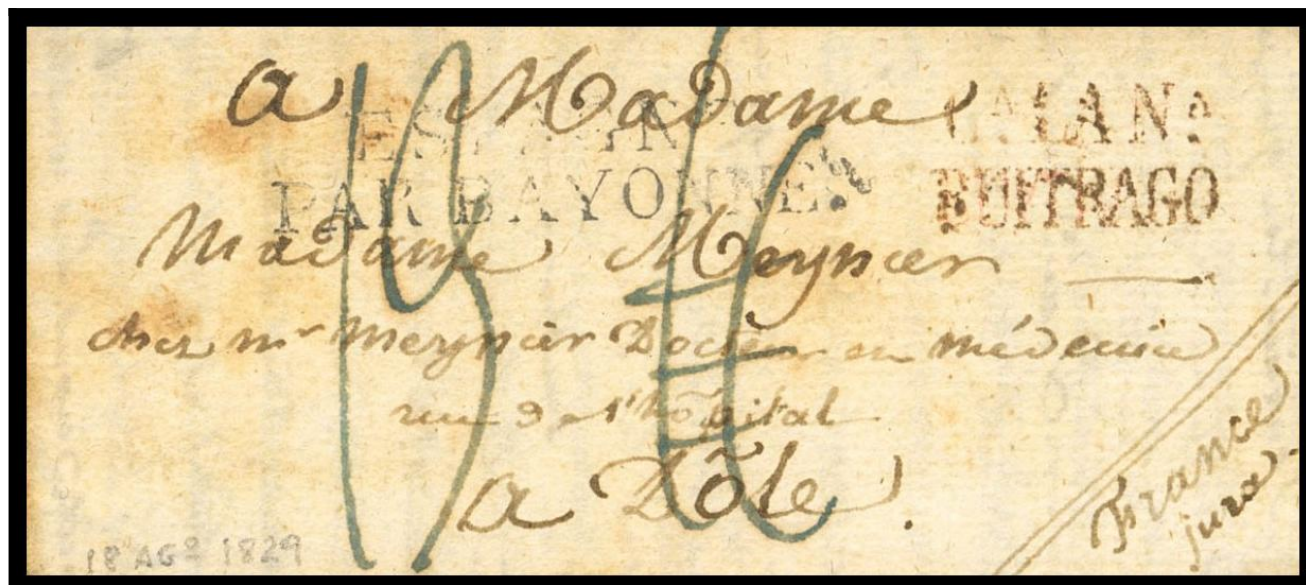 a Madame
ESPAGNE
PAR BAYONNE.
BUITRAGO
Madame Meynier
chez mr Meynier Docteur en médecine
rue de l'hôpital
a Dôle.
France
jura.
18 AGº 1829